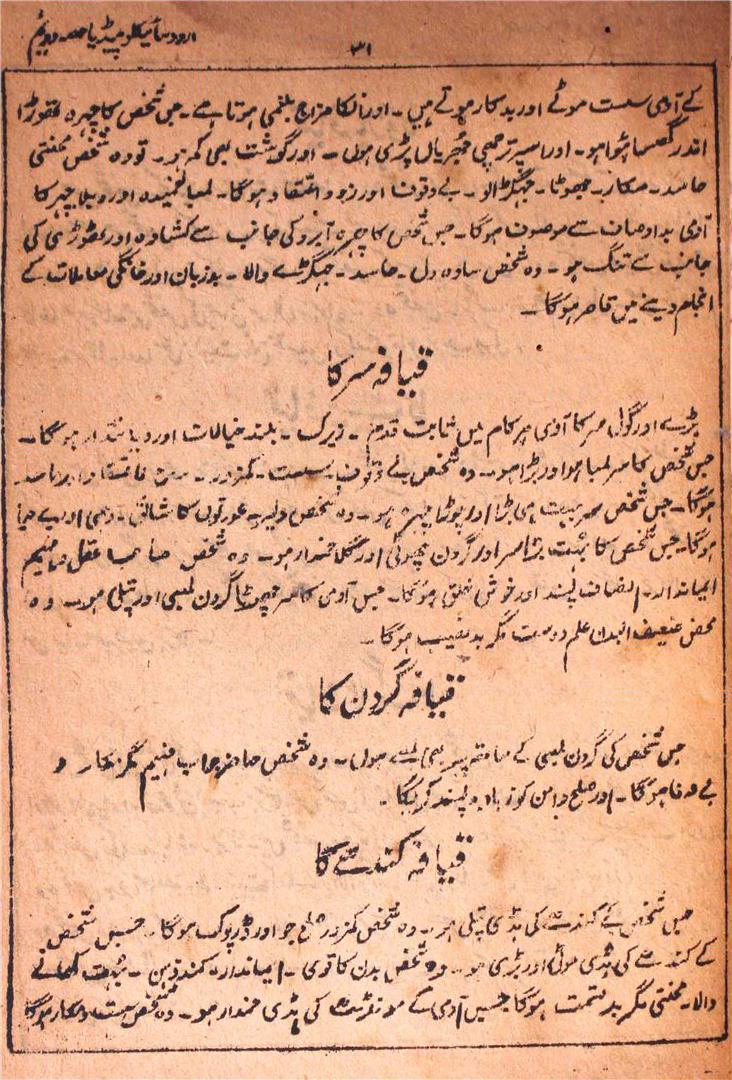 اردو سائیکلوپیڈیا حصہ دویٔم
۳۱
کے آدمی سست موٹے اور بدکار ہوتے ہیں۔ اور انکا مزاج بلغمی ہوتا ہے۔ جس شخص کا چہرہ تھوڑا
اندر گھسا ہوا ہو۔ اور اسپر ترچھی جھریاں پڑی ہوں۔ اور گوشت بھی کم ہو۔ تو وہ شخص محنتی
حاسد۔ مکار۔ جھوٹا۔ جھگڑالو۔ بے وقوف اور زود اعتقاد ہوگا۔ لمبا خمیدہ اور دبلا چہر کا
آدمی بد اوصاف سے موصوف ہوگا۔ جس شخص کا چہرہ ابرو کی جانب سے کشادہ اور ٹھوڑی کی
جانب سے تنگ ہو۔ وہ شخص سادہ دل۔ حاسد۔ جھگڑے والا۔ بدزبان اور خانگی معاملات کے
انجام دینے میں قاصر ہوگا۔
قیافہ سر کا
بڑے اور گول سر کا آدمی ہر کام میں ثابت قدم۔ زیرک۔ بلند خیالات اور دیانتدار ہوگا۔
جس شخص کا سر لمبا ہو اور بڑا ہو۔ وہ شخص بے وقوف۔ سست۔ کمزور۔
ہوگا۔ جس شخص سر بہت ہی بڑا اور چوڑا چہرہ ہو۔ وہ شخص دلیر۔ عورتوں کا شائق۔ وہمی اور بے حیا
ہوگا۔ جس شخص کا بہت بڑا سر اور گردن چھوٹی اور گلا خمدار ہو۔ وہ شخص صاحب عقل و فہیم
ایماندار۔ انصاف پسند اور خوش خلق ہوگا۔ جس آدمی کا سر چھوٹا گردن لمبی اور پتلی ہو۔ وہ
محض ضعیف البدن علم دوست مگر بد نصیب ہوگا۔
قیافہ گردن کا
جس شخص کی گردن لمبی کے ساتھ پیر بھی لمبے ہوں۔ وہ شخص حاضر جواب فہیم مگر مکار و
بے وفا ہوگا۔ اور صلح و امن کو زیادہ پسند کریگا۔
قیافہ کندھے کا
جس شخص کے کندھے کی ہڈی پتلی ہو۔ وہ شخص کمزور صلح جو اور ڈرپوک ہوگا۔ جسیں شخص
کے کندھے کی ہڈی موٹی اور بڑی ہو۔ وہ شخص بدن کا قوی۔ ایماندار۔ کند ذہن۔ بہت کھانے
والا۔ محنتی مگر بد قسمت ہوگا جسیں آدمی کے مونڈھے کی ہڈی خمدار ہو۔ وہ شخص سست و مکار ہوگا